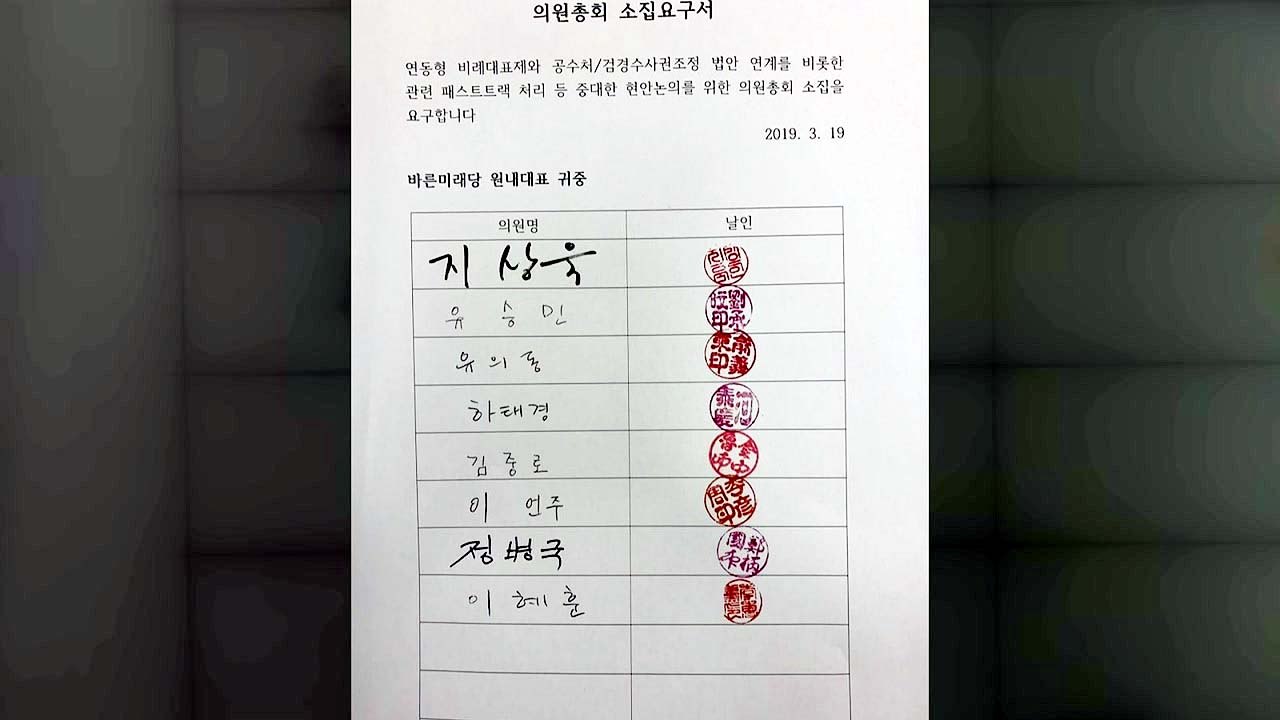 의원총회 소집요구서
연동형 비례대표제와 공수처/검경수사권조정 법안 연계를 비롯한
관련 패스트트랙 처리 등 중대한 현안논의를 위한 의원총회 소집을
요구합니다
2019. 3. 19
바른미래당 원내대표 귀중
의원명 날인
지상욱
유승민
유의동
하태경
김중로
이언주
정병국
이혜훈